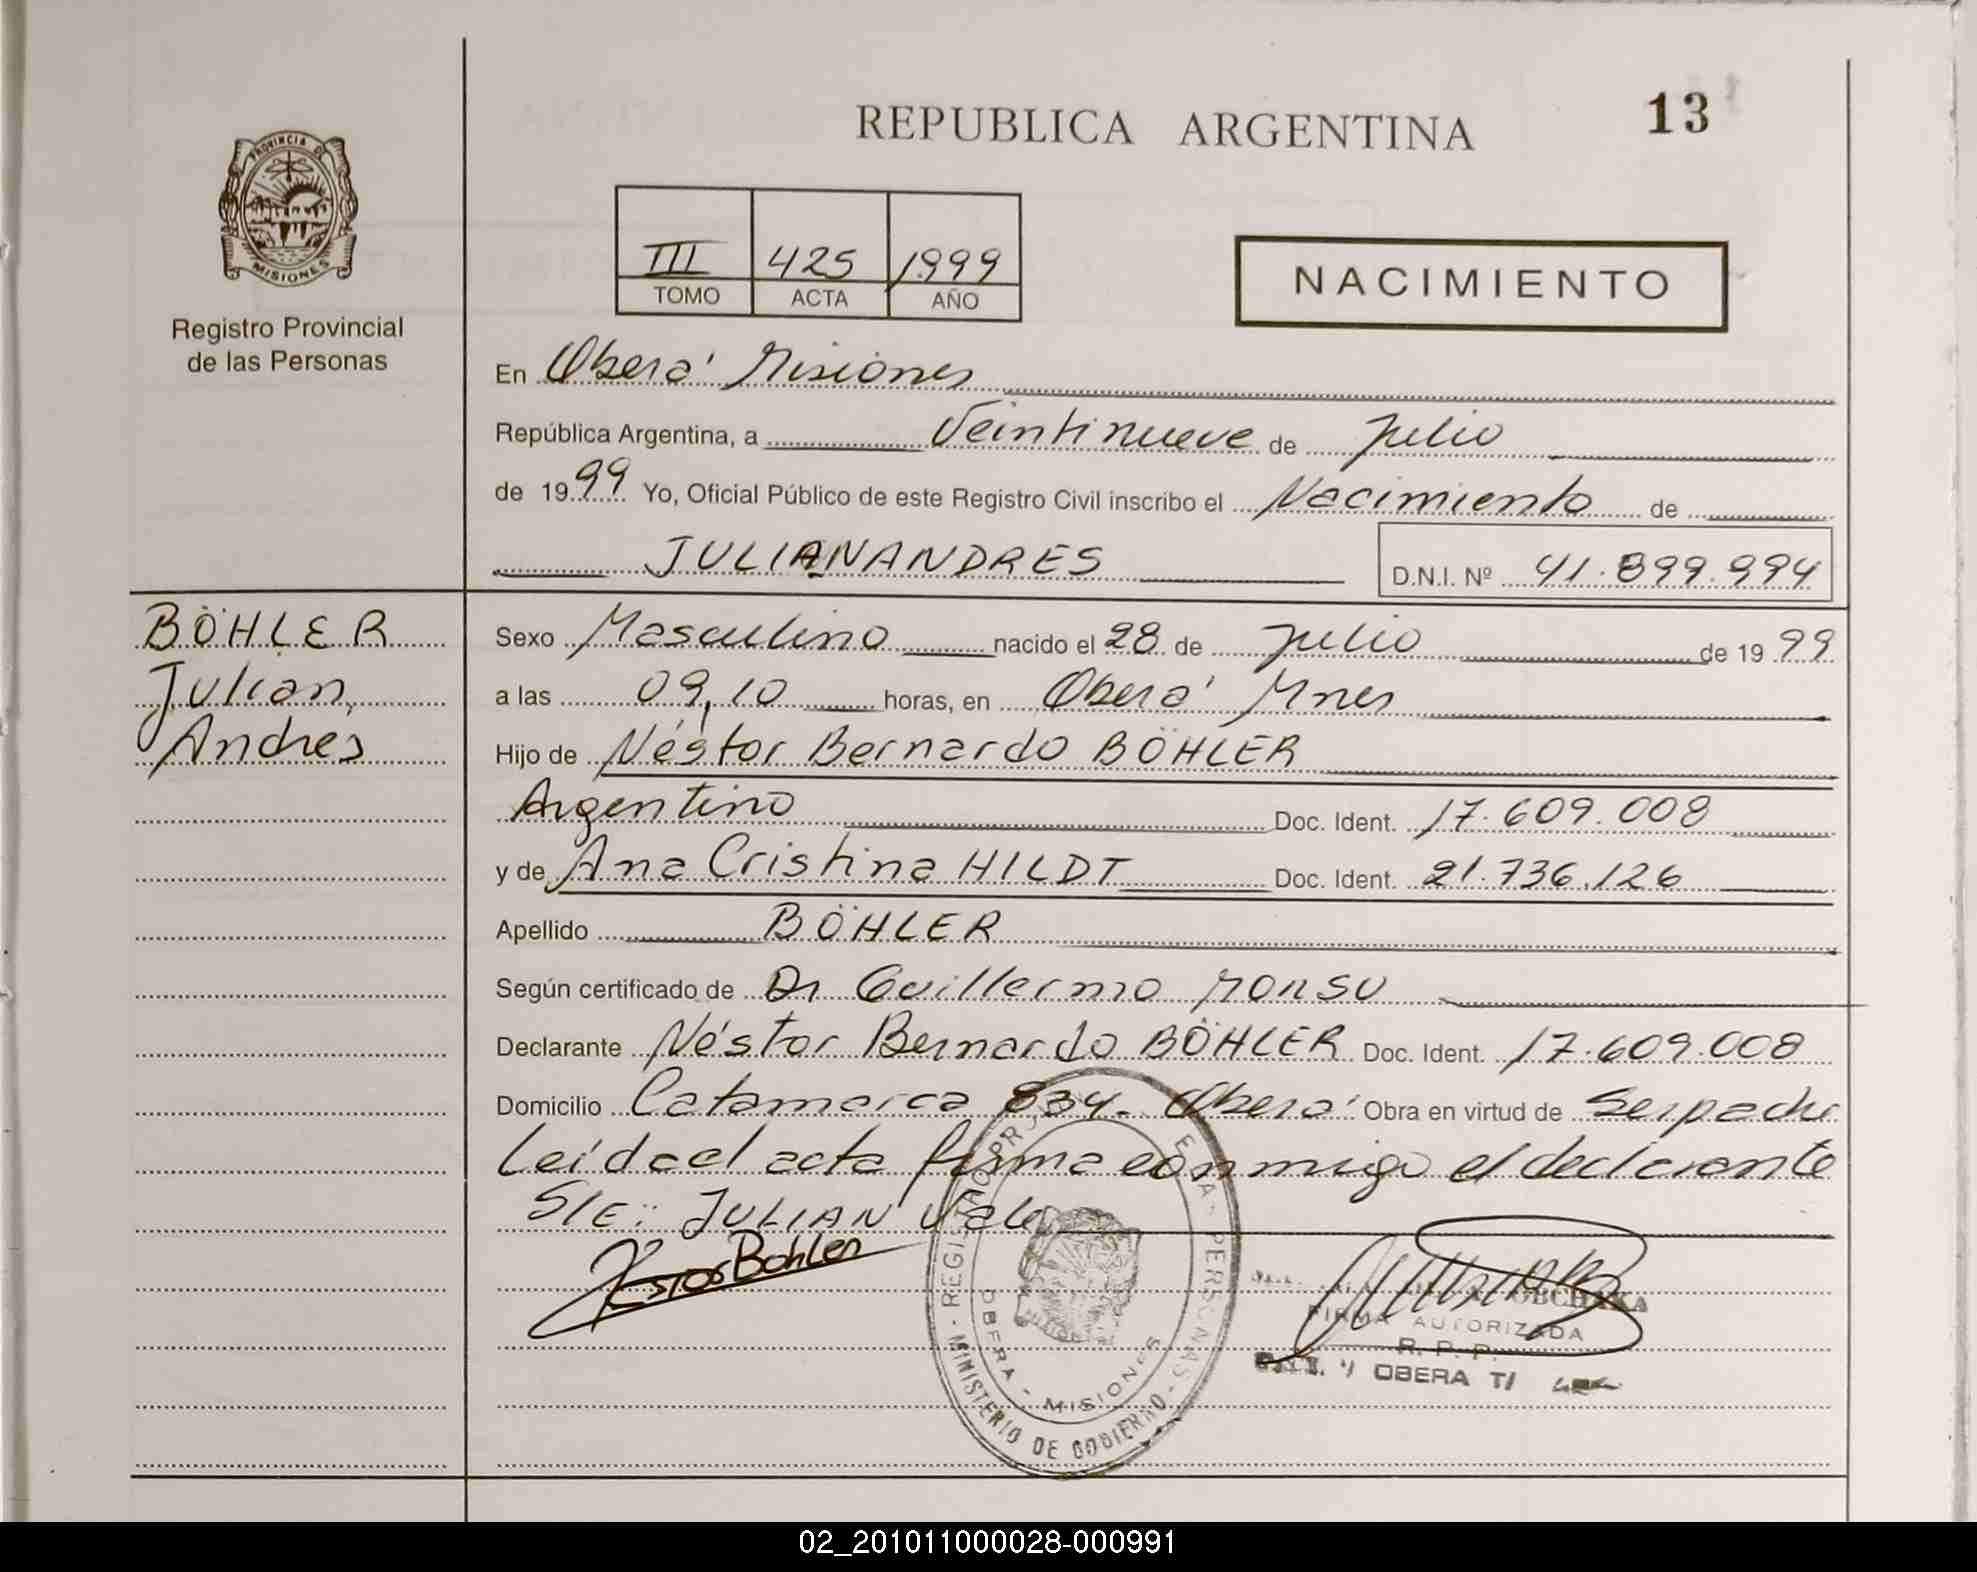 REPUBLICA ARGENTINA
13
PROVINCIA DE
MISIONES
Registro Provincial
de las Personas
III 425 1999
TOMO ACTA AÑO
NACIMIENTO
En Oberá Misiones
República Argentina, a Veintinueve de Julio
de 1999 Yo, Oficial Público de este Registro Civil inscribo el Nacimiento de
JULIAN ANDRES D.N.I. Nº 41.899.994
BÖHLER
Julian,
Andres
Sexo Masculino nacido el 28 de Julio de 1999
a las 09,10 horas, en Oberá Mnes
Hijo de Néstor Bernardo BÖHLER
Argentino Doc. Ident. 17.609.008
y de Ana Cristina HILDT Doc. Ident. 21.736.126
Apellido BÖHLER
Según certificado de Dr Guillermo
Declarante Néstor Bernardo BÖHLER Doc. Ident. 17.609.008
Domicilio Catamarca 834- Oberá Obra en virtud de Ser padre
Leída el acta firma conmigo el declarante
S/E: JULIAN Vale
Nestor Bohler
FIRMA AUTORIZADA
R. P. P.
OBERA T/
MINISTERIO DE GOBIERNO
OBERA - MISIONES
02_201011000028-000991